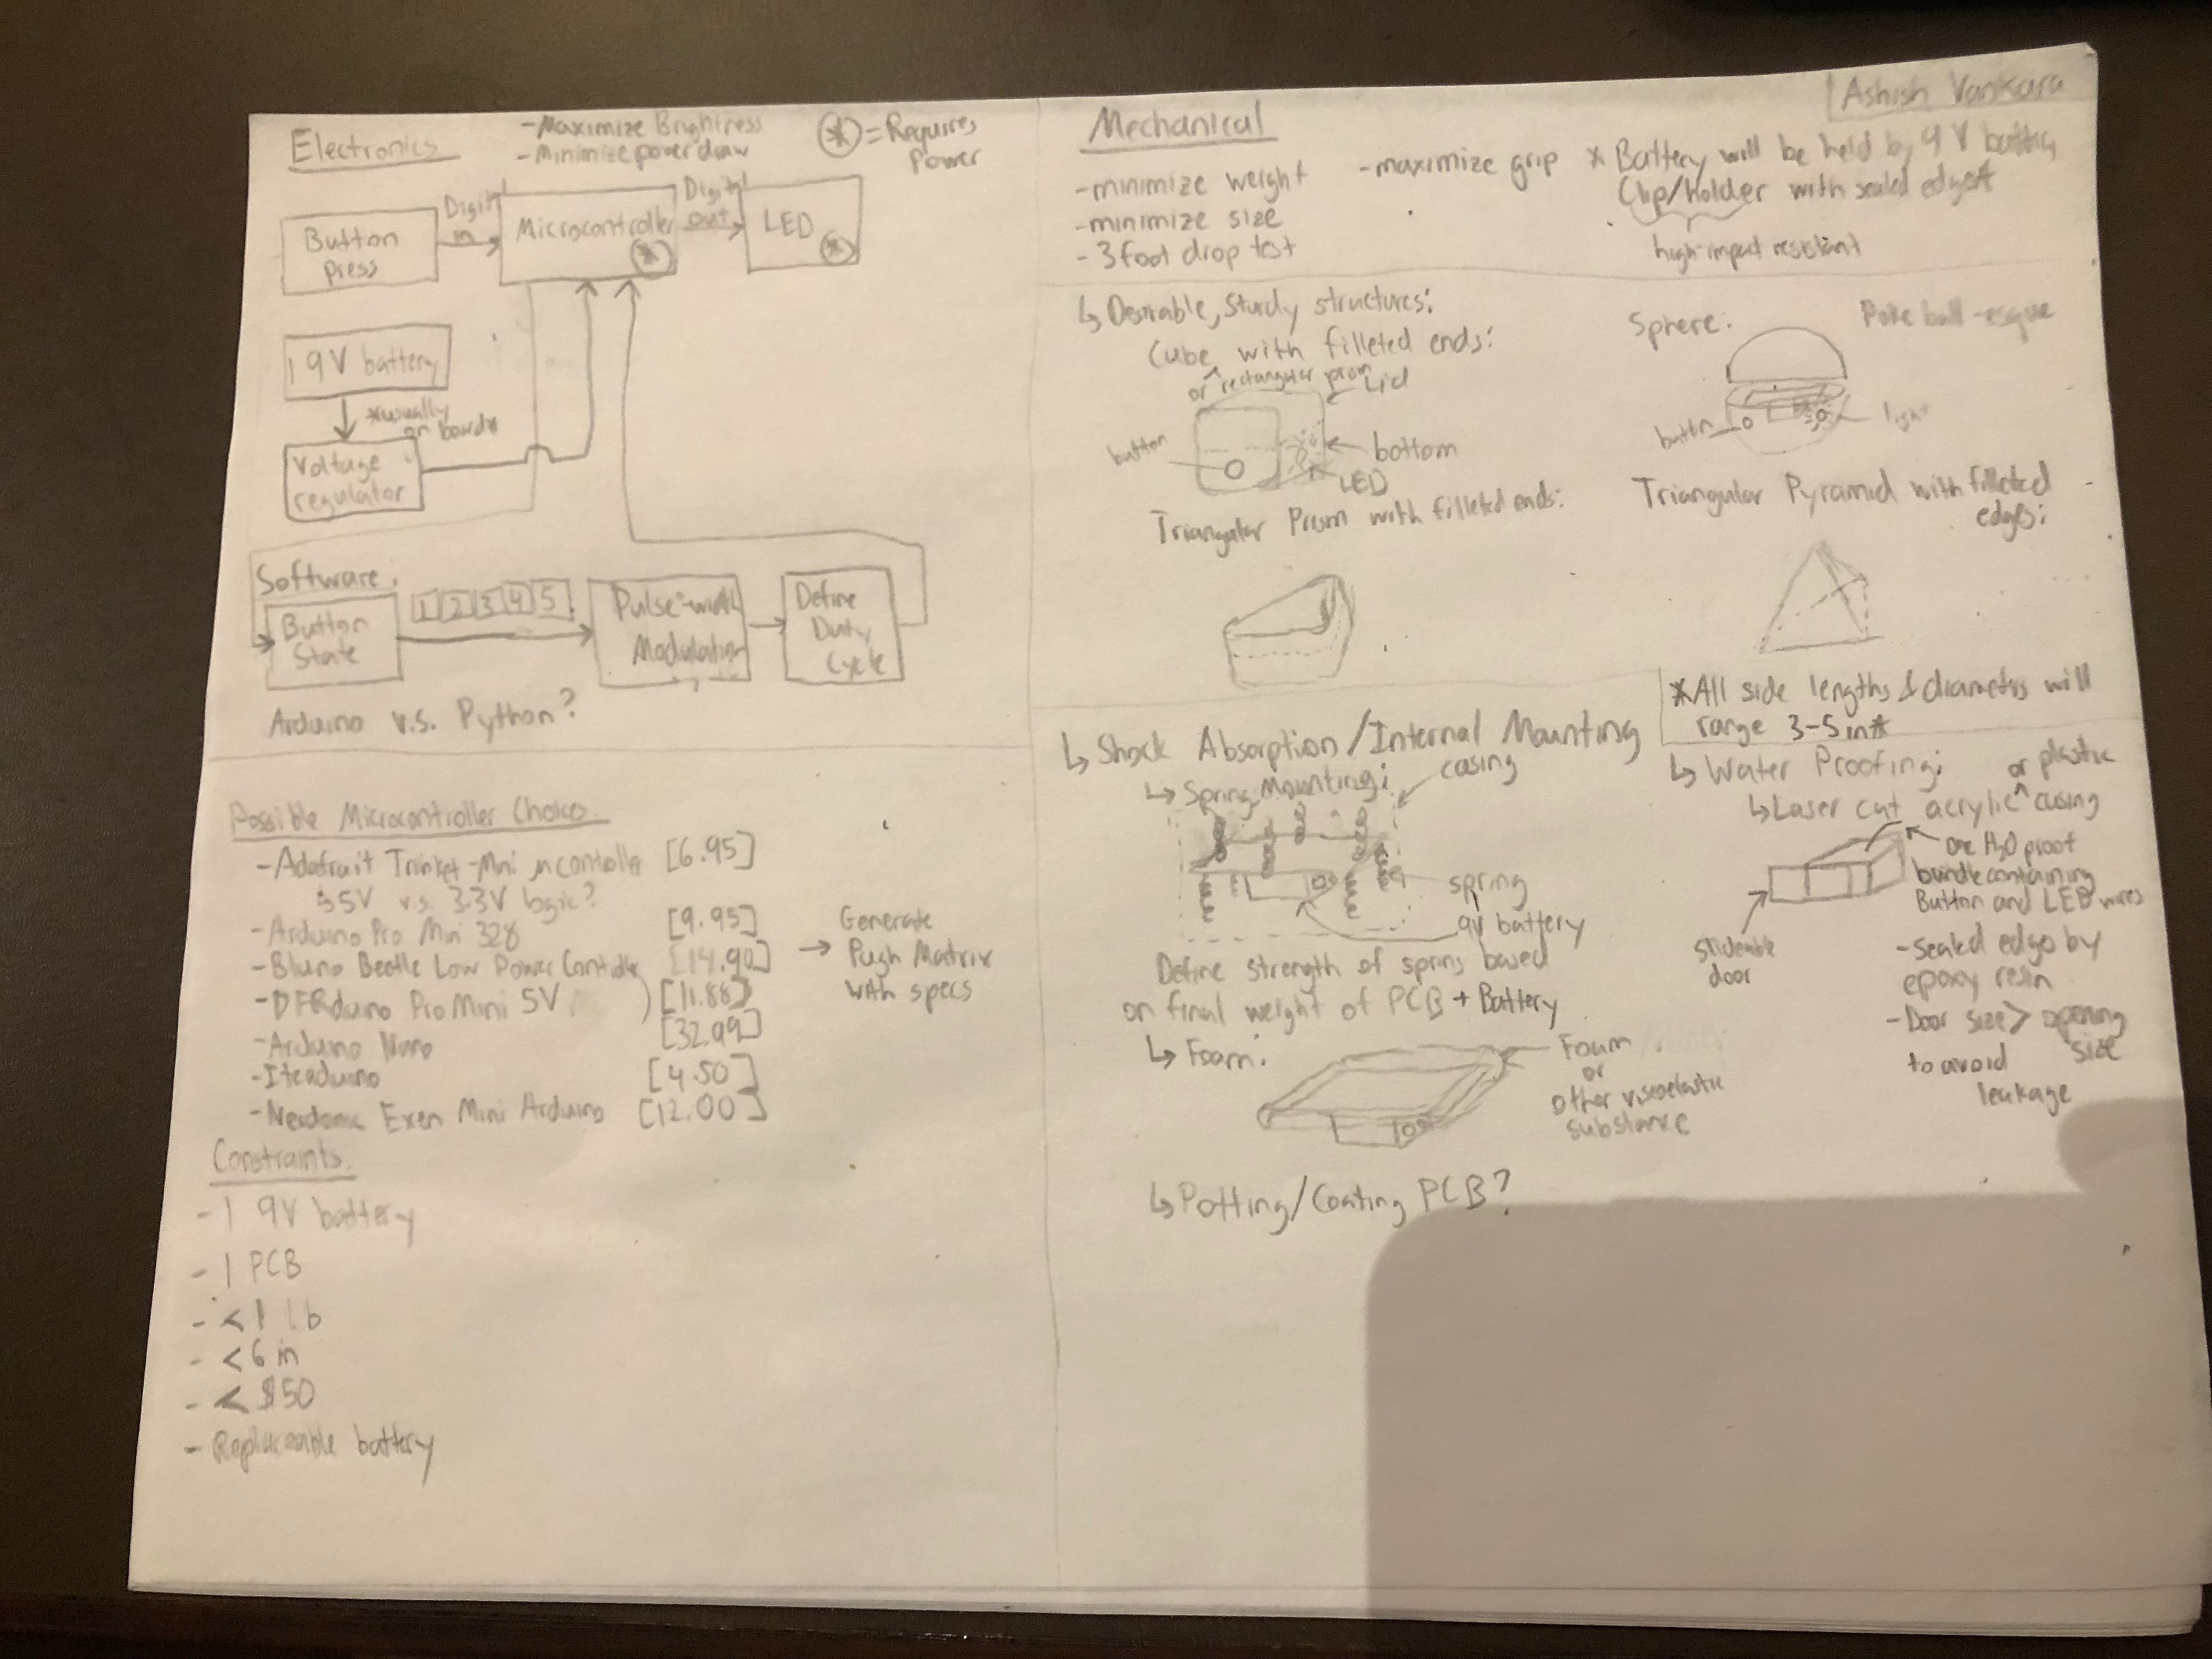 Electronics
- Maximize Brightness
- Minimize power draw
(*) = Requires
power
Button
press
Digital
in
Microcontroller
(*)
Digital
out
LED
(*)
1 9V battery
*usually
on boards
Voltage
regulator
Software:
Button
State
1 2 3 4 5
Pulse-width
Modulation
Define
Duty
Cycle
Arduino v.s. Python?
Possible Microcontroller Choices
- Adafruit Trinket - Mini μcontroller [6.95]
↳ 5V v.s. 3.3V logic?
- Arduino Pro Mini 328 [9.95]
- Bluno Beetle Low Power Controller [14.90]
- DFRduino Pro Mini 5V [11.88]
- Arduino Nano [32.99]
- Iteaduino [4.50]
- Exen Mini Arduino [12.00]
→ Generate
Pugh Matrix
with specs
Constraints
- 1 9V battery
- 1 PCB
- < 1 lb
- < 6 in
- < $50
- Replaceable battery
Ashish
Mechanical
- minimize weight
- minimize size
- 3 foot drop test
- maximize grip
* Battery will be held by 9V battery
Clip/holder with sealed edges
high-input resistant
↳ Desirable, Sturdy structures:
Cube with filleted ends:
or rectangular prism
button
Lid
bottom
LED
Sphere:
Poke ball-esque
button
light
Triangular Prism with filleted ends:
Triangular Pyramid with filleted
edges:
*All side lengths & diameters will
range 3-5 in*
↳ Shock Absorption/Internal Mounting
↳ Spring Mounting:
casing
spring
9V battery
Define strength of spring based
on final weight of PCB + Battery
↳ Foam:
Foam
or
other viscoelastic
substance
↳ Potting/Coating PCB?
↳ Water Proofing:
or plastic
↳ Laser cut acrylic ^ casing
slideable
door
one H2O proof
bundle containing
Button and LED wires
- sealed edges by
epoxy resin
- Door size > opening
size
to avoid
leakage